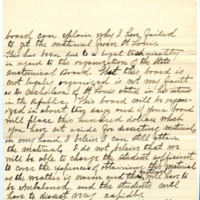 board can explain why I have failed
to get the material from St Louis.
This has been due to a legal technicality
in regard to the organization of the State
Anatomical Board. That this board is
not legally organized is not my fault
as Dr of St Louis stated in his letter
in the Republic. This board will be organ
ized in about ten days and if your Board
will place the hundred dollars which
you have set aside for dissecting material
in my hand, I believe I can still obtain
the material. I do not believe that we
will be able to charge the student sufficient
to cover the expenses of obtaining this material
as the weather is warm and they will have to
be embalmed, and the students will
have to dissect very rapidly.